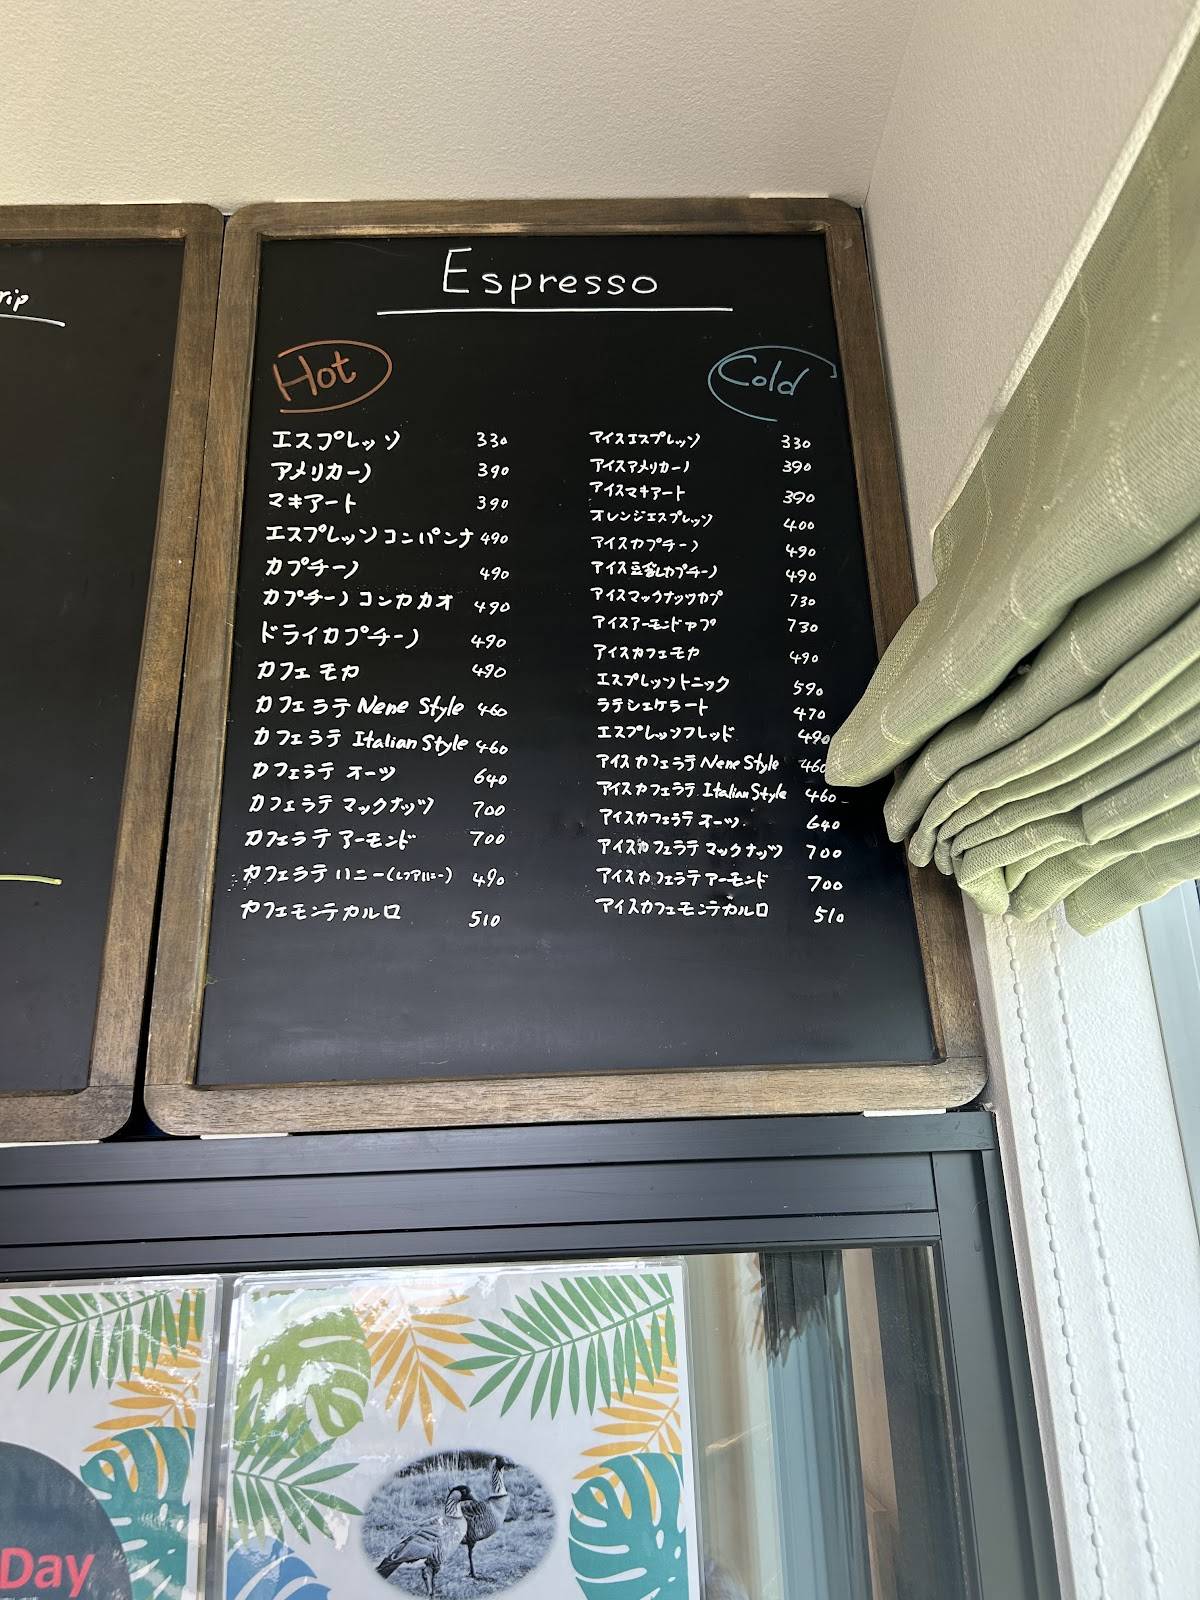 rip
Espresso
Hot
エスプレッソ 330
アメリカーノ 390
マキアート 390
エスプレッソコンパンナ 490
カプチーノ 490
カプチーノコンカカオ 490
ドライカプチーノ 490
カフェモカ 490
カフェラテ Nene Style 460
カフェラテ Italian Style 460
カフェラテ オーツ 640
カフェラテ マックナッツ 700
カフェラテ アーモンド 700
カフェラテ ハニー(レアハニー) 490
カフェモンテカルロ 510
Cold
アイスエスプレッソ 330
アイスアメリカーノ 390
アイスマキアート 390
オレンジエスプレッソ 400
アイスカプチーノ 490
アイス豆乳カプチーノ 490
アイスマックナッツカプ 730
アイスアーモンドカプ 730
アイスカフェモカ 490
エスプレッソトニック 590
ラテシェケラート 470
エスプレッソフレッド 490
アイスカフェラテ Nene Style 460
アイスカフェラテ Italian Style 460
アイスカフェラテ オーツ 640
アイスカフェラテ マックナッツ 700
アイスカフェラテ アーモンド 700
アイスカフェモンテカルロ 510
Day